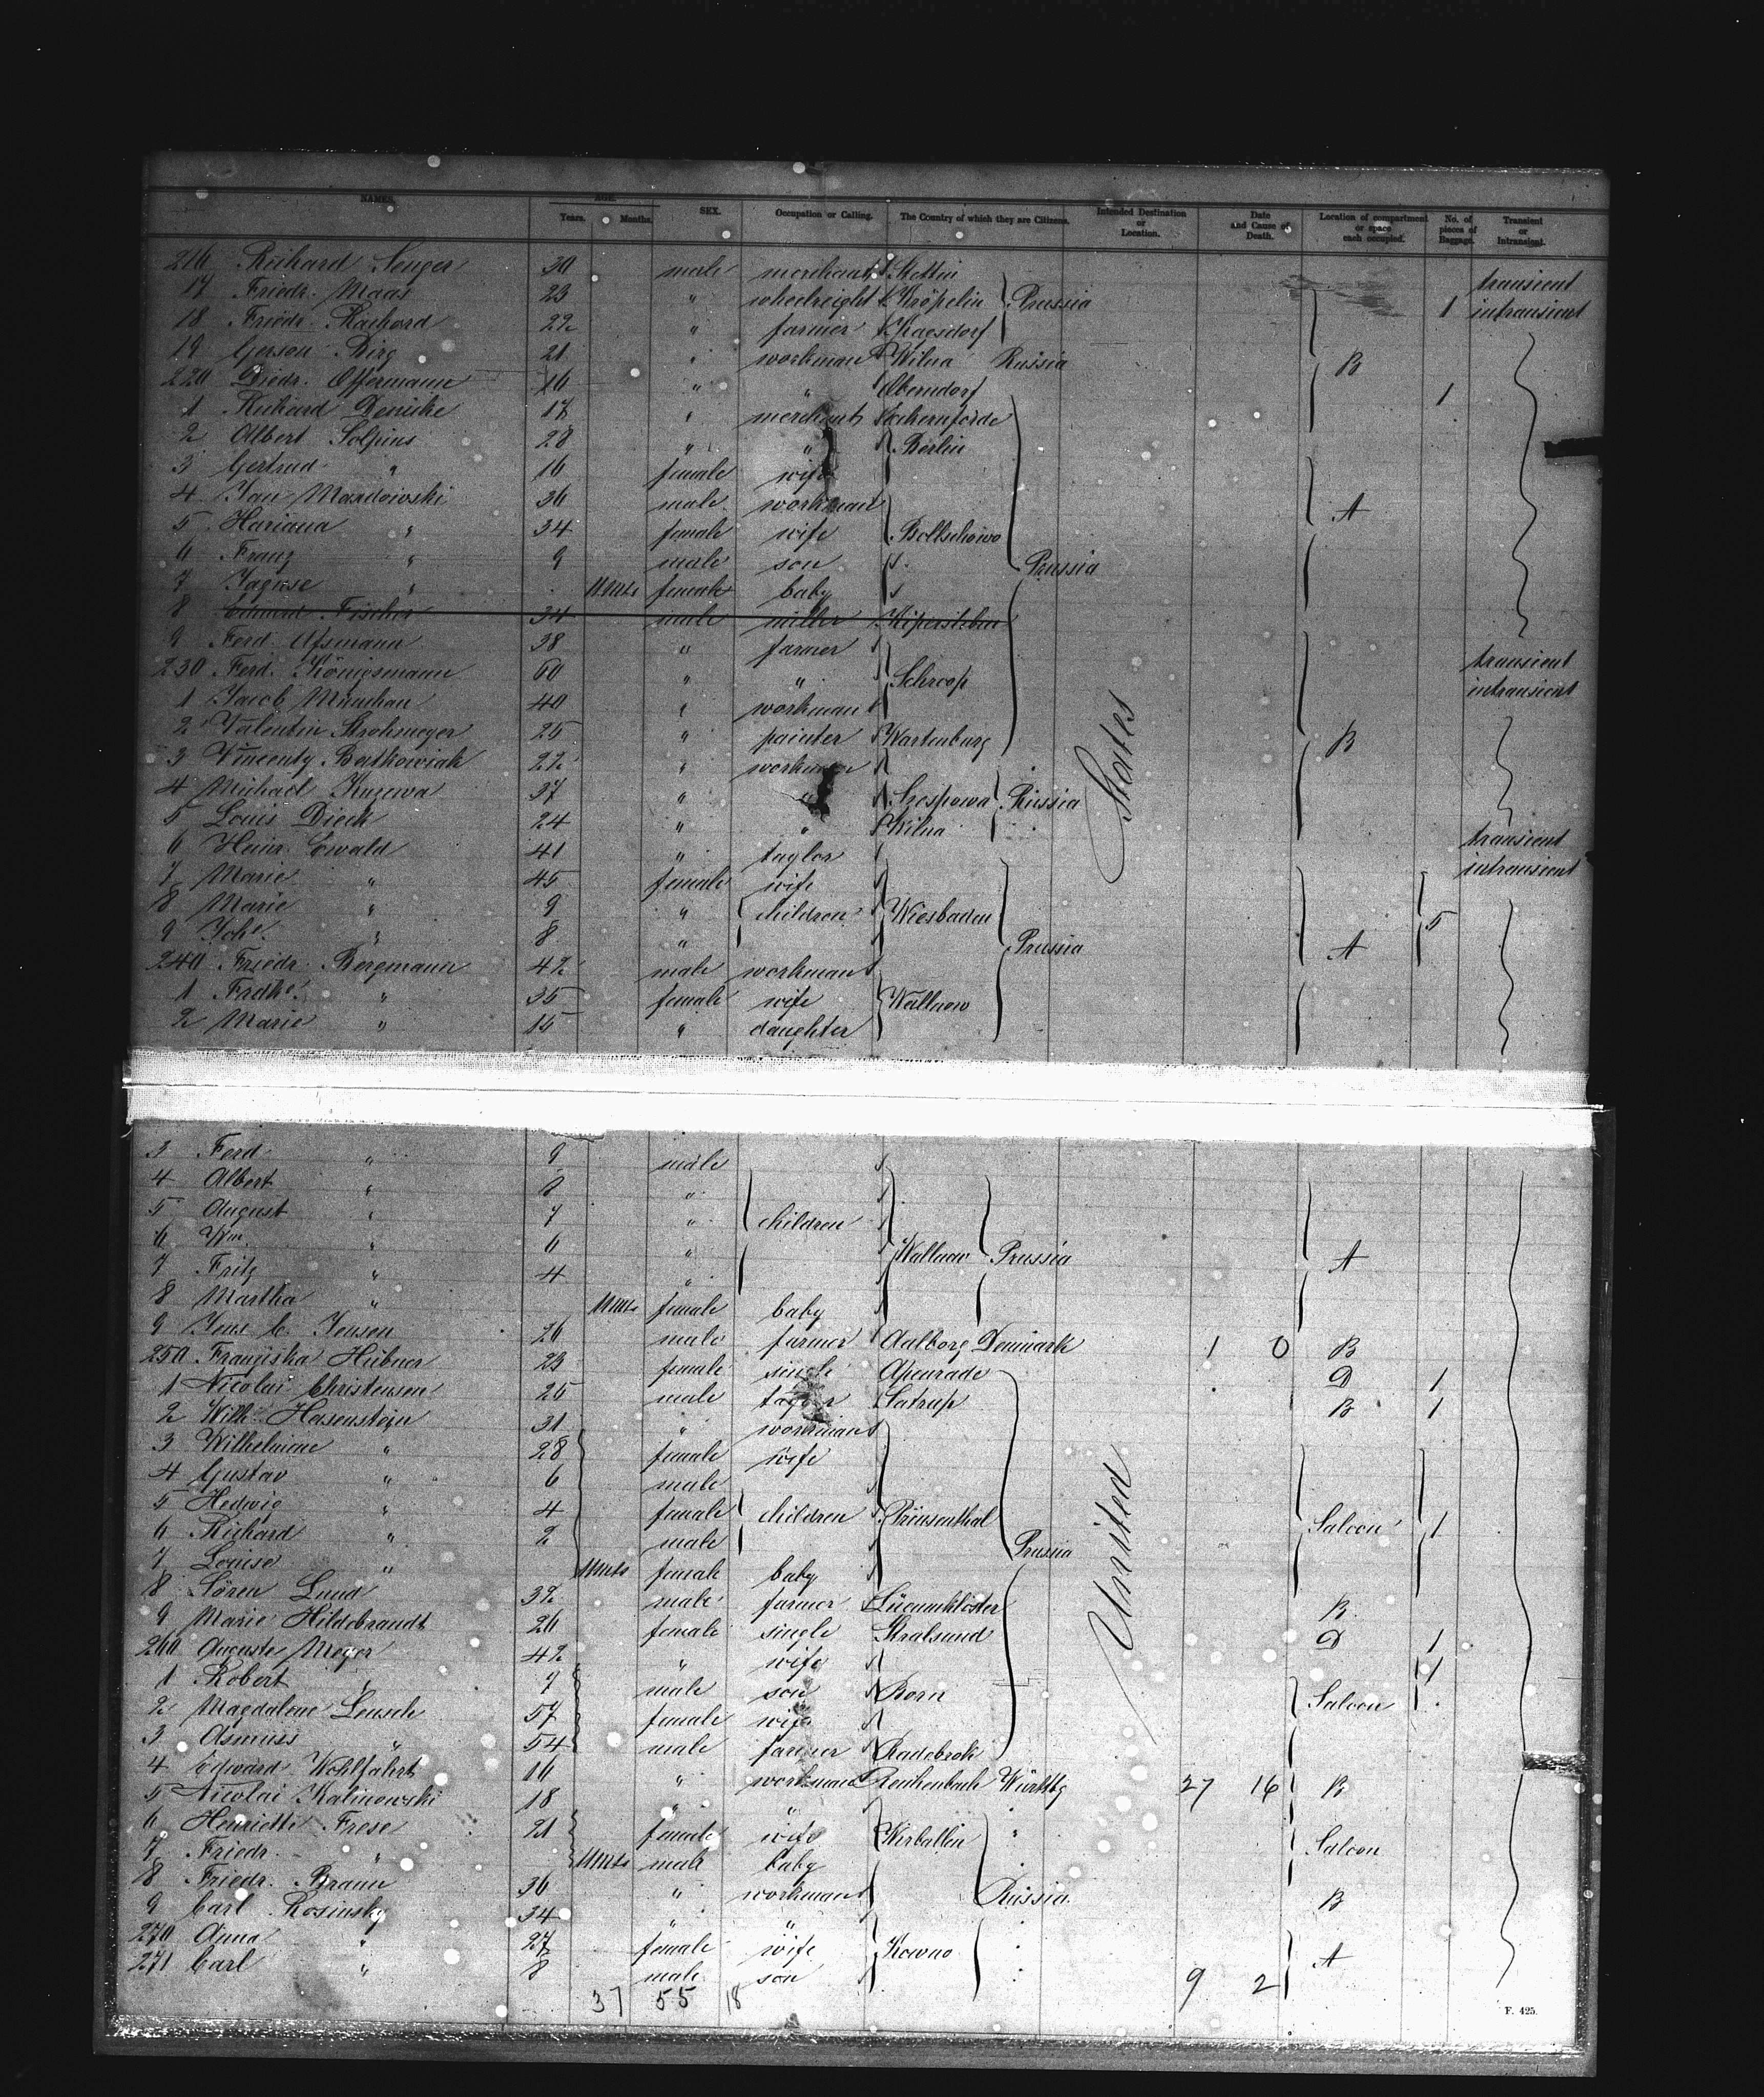 NAMES. AGE. Years. Months. SEX. Occupation or Calling. The Country of which they are Citizens. Intended Destination or Location. Date and Cause of Death. Location of compartment or space each occupied. No. of pieces of Baggage. Transient or Intransient.
216 Richard Senger 30 male merchant Stettin transient
17 Friedr. Maas 23 " wheelreight Kröpelin Prussia 1 intransient
18 Friedr. Rachard 22 " farmer Kagsdorf
19 Gerson Birg 21 " workman Wilna Russia B
220 Diedr. Offermann 16 " " Oberndorf 1
1 Richard Denicke 17 " merchant Eckernförde
2 Albert Solpius 28 " " Berlin
3 Gertrud " 16 female wife
4 Jan Mandowski 36 male workman A
5 Mariana " 34 female wife Boltschowo
6 Franz " 9 male son Prussia
7 Jagnse " 11 mts female baby
8 Edward Fischer 34 male miller
9 Ferd. Assmann 38 " farmer
230 Ferd. Königsmann 60 " " Schroop transient
1 Jacob Munchan 40 " workman intransient
2 Valentin Strohmeyer 25 " painter Wartenburg
3 Vincenty Bartkowiak 22 " workman B
4 Michael Kujewa 37 " " Russia
5 Louis Dieck 24 " " Wilna
6 Heinr. Ewald 41 " taylor transient
7 Marie " 45 female wife intransient
8 Marie " 9 " children Wiesbaden
9 Johe. " 8 " Prussia A 5
240 Friedr. Bergmann 42 male workman
1 Fredke. " 35 female wife Wallnow
2 Marie " 15 " daughter
States
3 Ferd. " 9 male
4 Albert " 8 "
5 August " 7 " children
6 Wm. " 6 " Wallnow Prussia A
7 Fritz " 4 "
8 Martha " 11 mts female baby
9 Jens C. Jensen 26 male farmer Aalborg Denmark 1 0 B
250 Franziska Hübner 23 female single Apenrade D 1
1 Nicolai Christensen 25 male taylor Satrup B 1
2 Wilh. Hasenstein 31 " workman
3 Wilhelmine " 28 female wife
4 Gustav " 6 male
5 Hedwig " 4 female children Prinsenthal Saloon 1
6 Richard " 2 male Prussia
7 Louise " 11 mts female baby
8 Sören Lund 32 male farmer Lücumkloster B
9 Marie Hildebrandt 26 female single Stralsund D 1
260 Auguste Meyer 42 " wife 1
1 Robert " 7 male son Born Saloon
2 Magdalene Lensch 57 female wife
3 Asmuss " 54 male farmer Radebrok
4 Edward Wohlfahrt 16 " workman Reichenbach Württbg 27 16 B
5 Nicolai Kalinowski 18 " "
6 Henriette Frese 21 female wife Kirballen " Saloon
7 Friedr. " 11 mts male baby
8 Friedr. Braun 36 " workman Russia B
9 Carl Rosinsky 34 " "
270 Anna " 27 female wife Kowno A
271 Carl " 8 male son 9 2
United
37 55 18
F. 425.